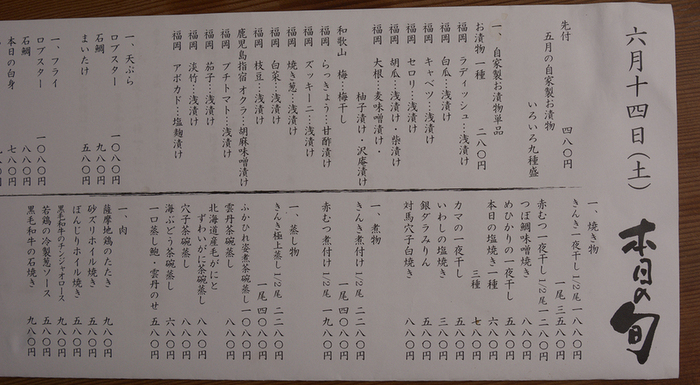 六月十四日(土)
本日の旬
先付
五月の自家製お漬物
いろいろ九種盛
四八〇円
一、自家製お漬物単品
お漬物一種 二八〇円
福岡 ラディッシュ…浅漬け
福岡 白瓜…浅漬け
福岡 キャベツ…浅漬け
福岡 セロリ…浅漬け
福岡 胡瓜…浅漬け・柴漬け
福岡 大根…麦味噌漬け・
柚子漬け・沢庵漬け
和歌山 梅…梅干し
福岡 らっきょう…甘酢漬け
福岡 ズッキーニ…浅漬け
福岡 焼き葱…浅漬け
福岡 白菜…浅漬け
福岡 枝豆…浅漬け
鹿児島指宿 オクラ…胡麻味噌漬け
福岡 プチトマト…浅漬け
福岡 茄子…浅漬け
福岡 淡竹…浅漬け
福岡 アボカド…塩麹漬け
一、天ぷら
ロブスター 一〇八〇円
石鯛 九八〇円
まいたけ 五八〇円
一、フライ
ロブスター 一〇八〇円
石鯛 八八〇円
本日の白身 七八〇円
一、焼き物
きんき一夜干し 1/2尾 一八八〇円
一尾 三五八〇円
赤むつ一夜干し 1/2尾 一二八〇円
つぼ鯛味噌焼き 八八〇円
めひかりの一夜干し 五八〇円
本日の塩焼き 一種 六八〇円
三種 七八〇円
カマの一夜干し 五八〇円
いわしの塩焼き 三八〇円
銀ダラみりん 五八〇円
対馬穴子白焼き 八八〇円
一、煮物
きんき煮付け 1/2尾 二二八〇円
一尾 四〇八〇円
赤むつ煮付け 1/2尾 一九八〇円
一、蒸し物
きんき極上蒸し 1/2尾 二二八〇円
一尾 四〇八〇円
ふかひれ姿煮茶碗蒸し 一〇八〇円
雲丹茶碗蒸し 八八〇円
北海道産毛がにと
ずわいがに茶碗蒸し 八八〇円
穴子茶碗蒸し 八八〇円
海ぶどう茶碗蒸し 六八〇円
一口蒸し鮑・雲丹のせ 五八〇円
一、肉
薩摩地鶏のたたき 九八〇円
砂ズリホイル焼き 五八〇円
ぼんじりホイル焼き 五八〇円
黒毛和牛のチンジャオロース 九八〇円
若鶏の冷製葱ソース 五八〇円
黒毛和牛の石焼き 九八〇円